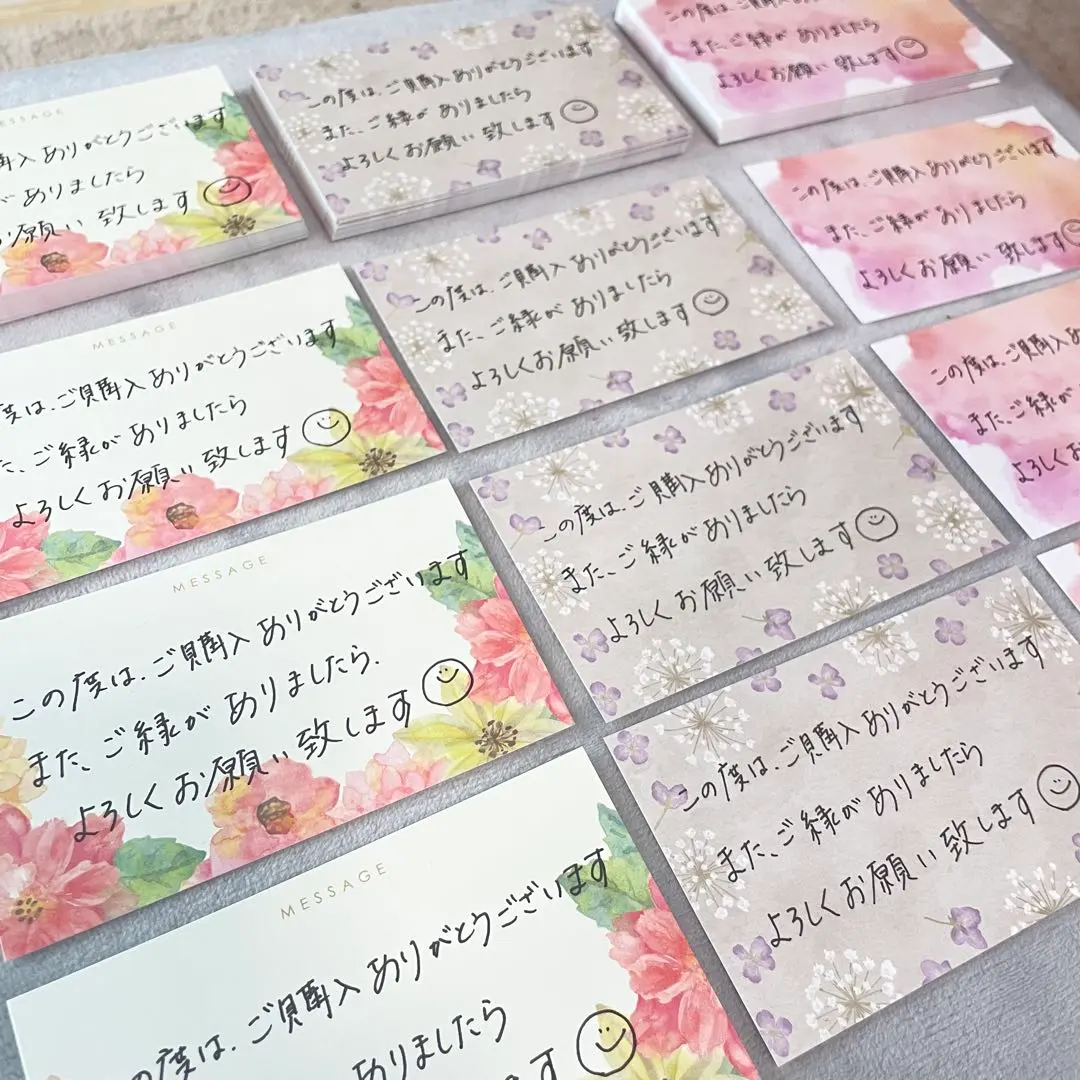 ESSAGE
購入ありがとうございます
がありましたら
お願い致します
MESSAGE
度は、ご購入ありがとうございます
た、ご縁がありましたら
よろしくお願い致します
MESSAGE
この度は、ご購入ありがとうございます
また、ご縁がありましたら、
よろしくお願い致します
MESSAGE
の度は、ご購入ありがとうございます
ありましたら
す
この度は、ご購入ありがとうございます
また、ご縁がありましたら
よろしくお願い致します
この度は、ご購入ありがとうございます
また、ご縁がありましたら
よろしくお願い致します
この度は、ご購入ありがとうございます
また、ご縁がありましたら
よろしくお願い致します
この度は、ご購入ありがとうございます
また、ご縁がありましたら
よろしくお願い致します
この度は、ご購入ありがとうございます
また、ご縁がありましたら
よろしくお願い致します
この度は、ご購入ありがとうございます
また、ご縁がありましたら
よろしくお願い致します
この度は、ご購入
また、ご縁が
よろしくお